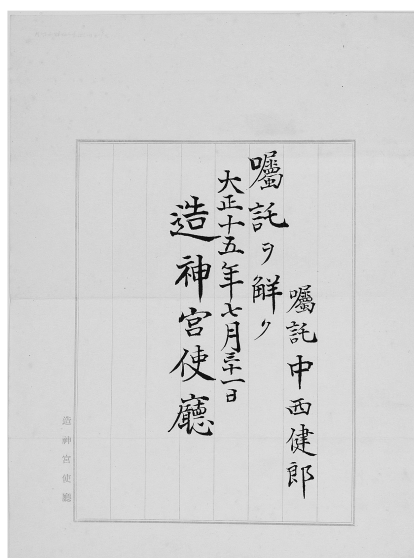 囑託 中西健郎
囑託ヲ解ク
大正十五年七月三十一日
造神宮使廳
造神宮使廳